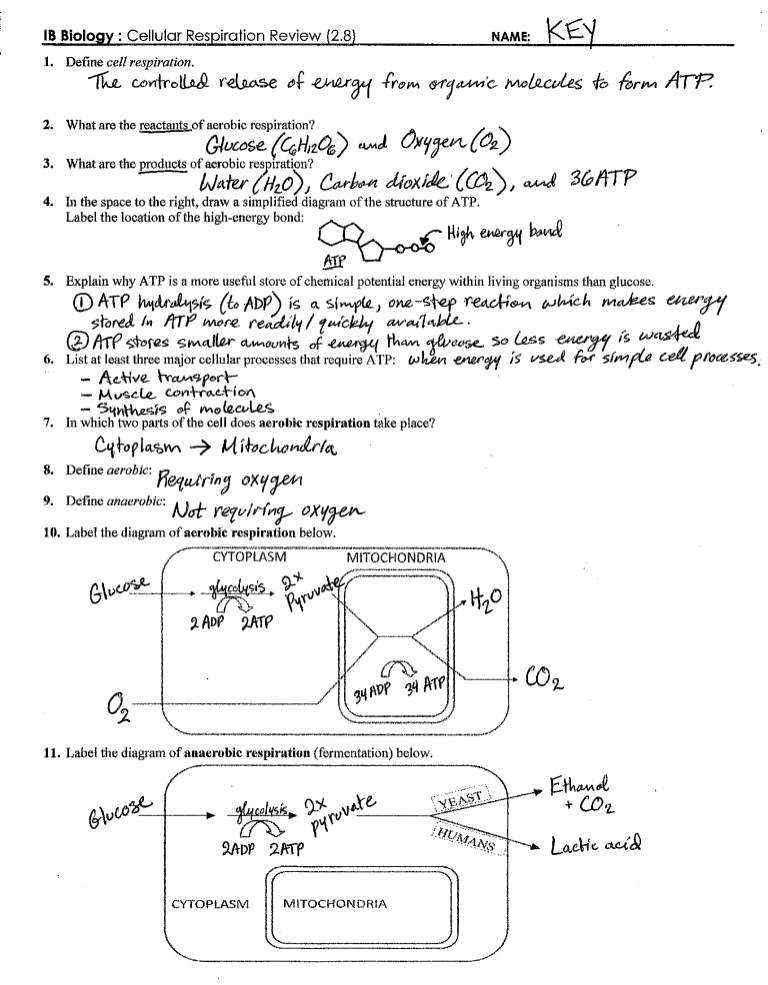 IB Biology : Cellular Respiration Review (2.8) NAME: KEY
1. Define cell respiration.
The controlled release of energy from organic molecules to form ATP.
2. What are the reactants of aerobic respiration?
Glucose (C6H12O6) and Oxygen (O2)
3. What are the products of aerobic respiration?
Water (H2O), Carbon dioxide (CO2), and 36 ATP
4. In the space to the right, draw a simplified diagram of the structure of ATP.
Label the location of the high-energy bond:
High energy bond
ATP
5. Explain why ATP is a more useful store of chemical potential energy within living organisms than glucose.
① ATP hydralysis (to ADP) is a simple, one-step reaction which makes energy
stored in ATP more readily/quickly available.
② ATP stores smaller amounts of energy than glucose so less energy is wasted
6. List at least three major cellular processes that require ATP: when energy is used for simple cell processes.
- Active transport
- Muscle contraction
- Synthesis of molecules
7. In which two parts of the cell does aerobic respiration take place?
Cytoplasm → Mitochondria
8. Define aerobic: Requiring oxygen
9. Define anaerobic: Not requiring oxygen
10. Label the diagram of aerobic respiration below.
CYTOPLASM MITOCHONDRIA
Glucose glycolysis 2x Pyruvate
2 ADP 2ATP
H2O
34 ADP 34 ATP
CO2
O2
11. Label the diagram of anaerobic respiration (fermentation) below.
Glucose glycolysis 2x pyruvate
2ADP 2ATP
YEAST
Ethanol
+ CO2
HUMANS
Lactic acid
CYTOPLASM MITOCHONDRIA